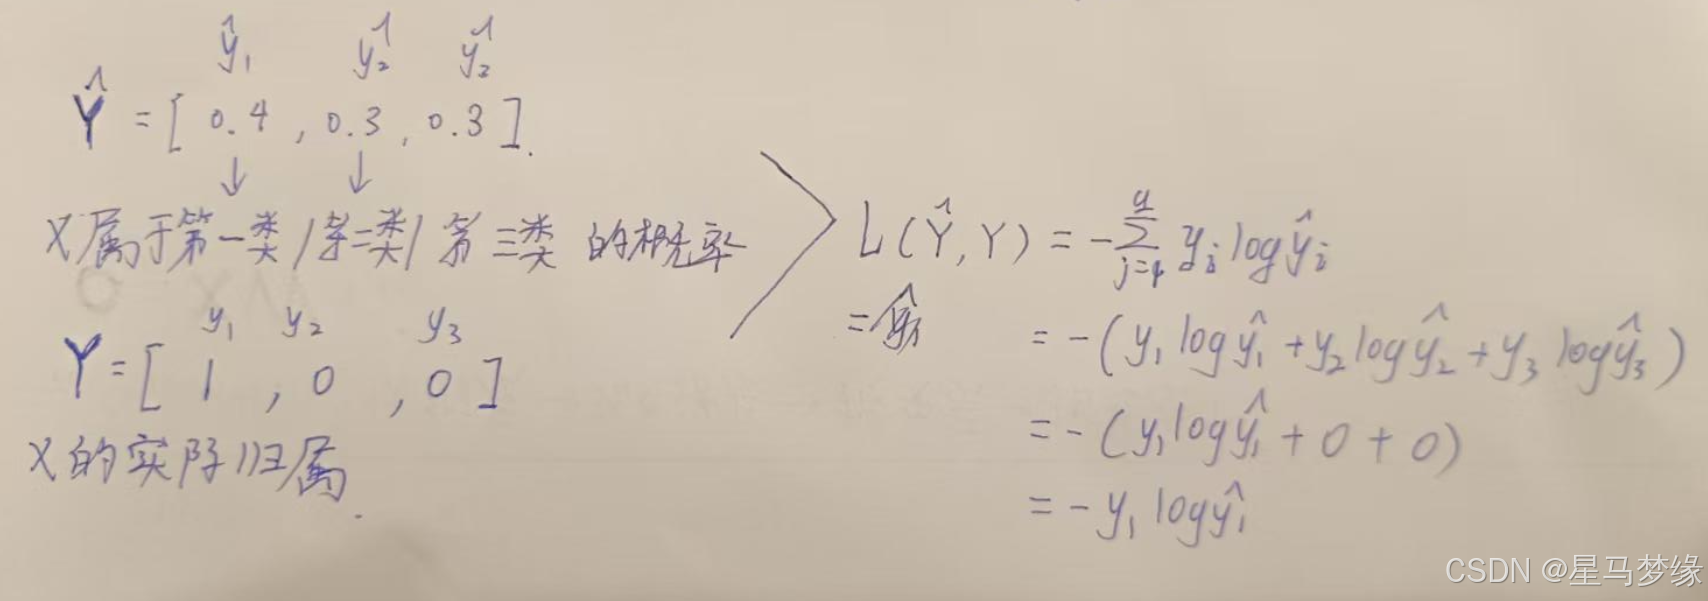 ŷ₁ ŷ₂ ŷ₂
Ŷ = [ 0.4 , 0.3 , 0.3 ].
↓ ↓
X属于第一类/第二类/第三类 的概率
y₁ y₂ y₃
Y = [ 1 , 0 , 0 ]
X的实际归属.
L(Ŷ, Y) = -∑ yⱼ log ŷⱼ
=
= -(y₁ log ŷ₁ + y₂ log ŷ₂ + y₃ log ŷ₃)
= -(y₁ log ŷ₁ + 0 + 0)
= - y₁ log ŷ₁
CSDN @星马梦缘